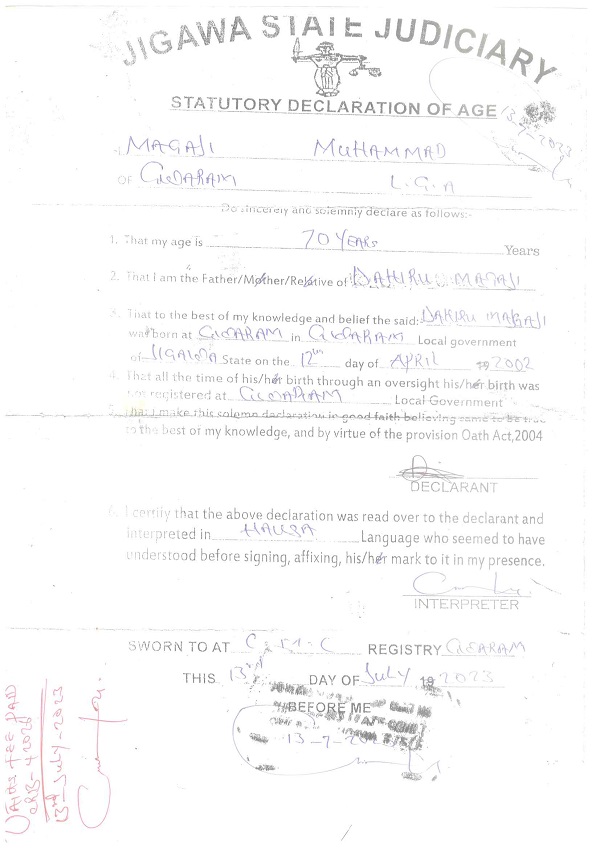 JIGAWA STATE JUDICIARY
STATUTORY DECLARATION OF AGE
13-7-2023
I MAGAJI MUHAMMAD
OF GUDARAM L.G.A
Do sincerely and solemnly declare as follows:-
1. That my age is 70 YEARS Years
2. That I am the Father/Mother/Relative of DAHIRU MAGAJI
3. That to the best of my knowledge and belief the said: DAHIRU MAGAJI
was born at GUDARAM in GUDARAM Local government
of JIGAWA State on the 12th day of APRIL 2002
4. That all the time of his/her birth through an oversight his/her birth was
not registered at GUDARAM Local Government
5. That I make this solemn declaration in good faith believing same to be true
to the best of my knowledge, and by virtue of the provision Oath Act,2004
DECLARANT
6. I certify that the above declaration was read over to the declarant and
interpreted in HAUSA Language who seemed to have
understood before signing, affixing, his/her mark to it in my presence.
INTERPRETER
SWORN TO AT REGISTRY GUDARAM
THIS 13th DAY OF July 19 2023
BEFORE ME
13-7-
FEE PAID
13th July-2023